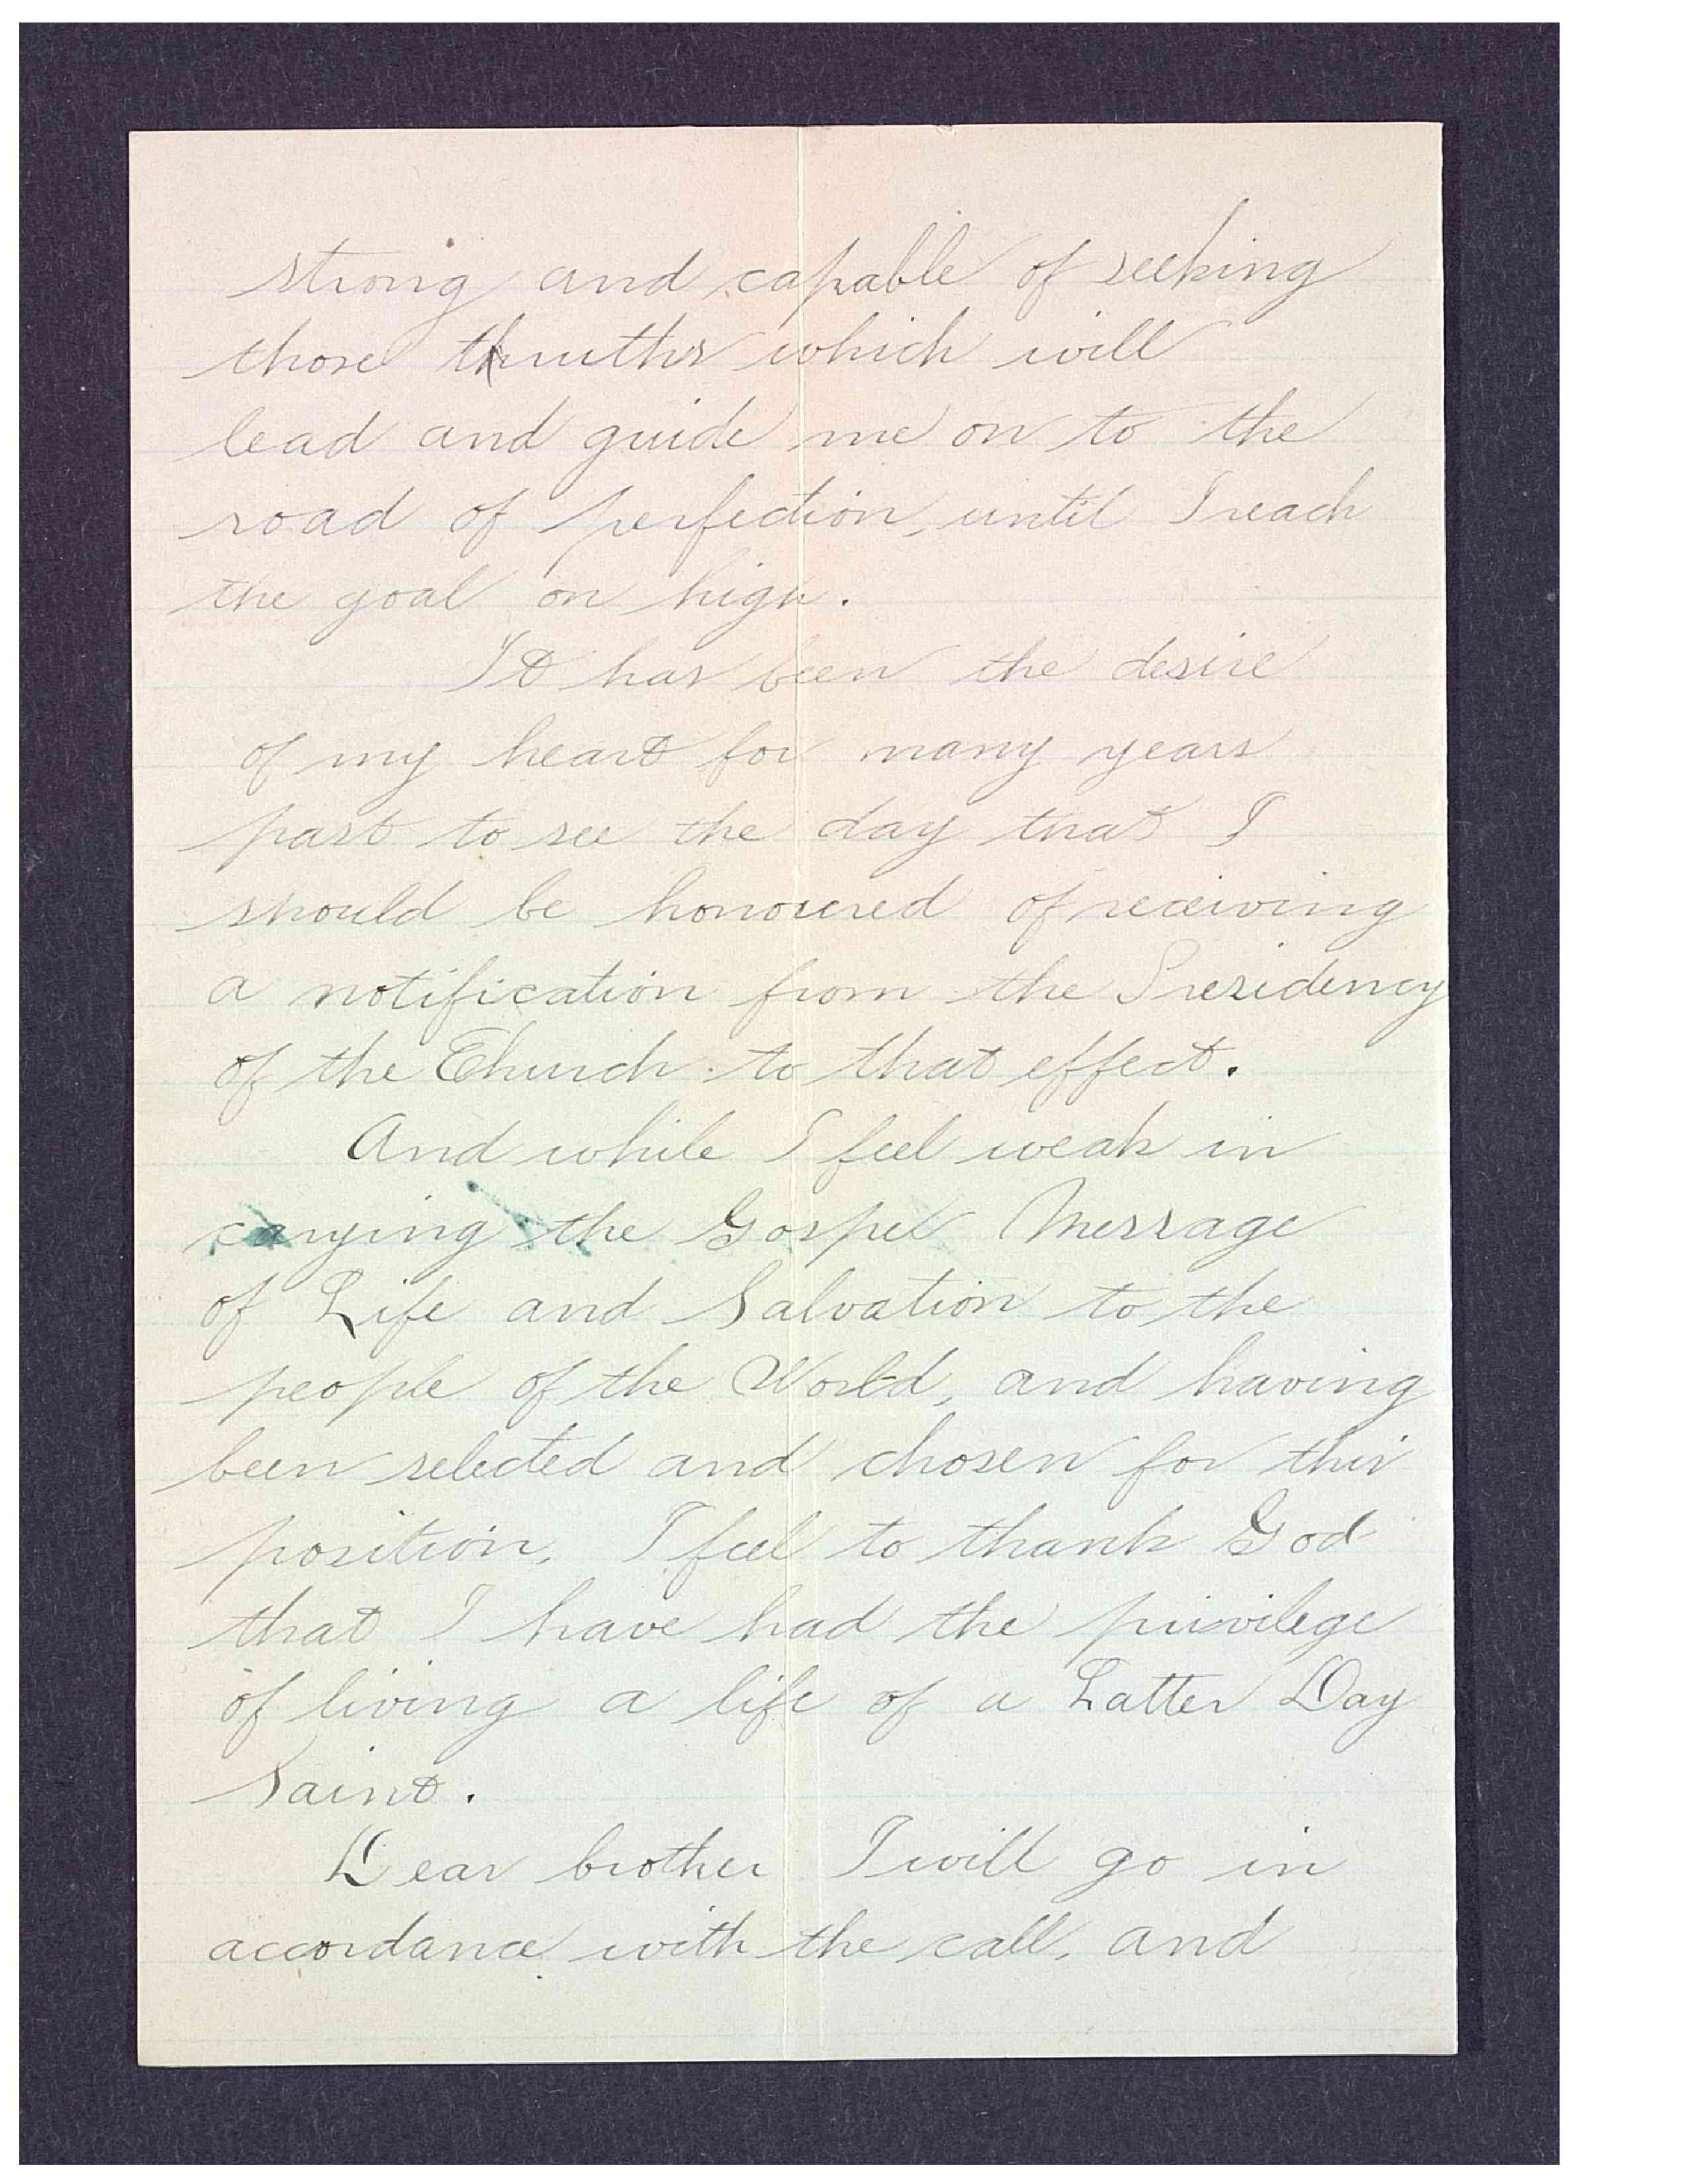 strong and capable of seeking
those thruths which will
lead and guide me on to the
road of perfection, until I reach
the goal on high.
It has been the desire
of my heart for many years
past to see the day that I
should be honoured of receiving
a notification from the Presidency
of the Church to that effect.
And while I feel weak in
carying the Gospel Message
of Life and Salvation to the
people of the World, and having
been selected and chosen for this
position, I feel to thank God
that I have had the privilege
of living a life of a Latter Day
Saint.
Dear brother I will go in
accordance with the call, and